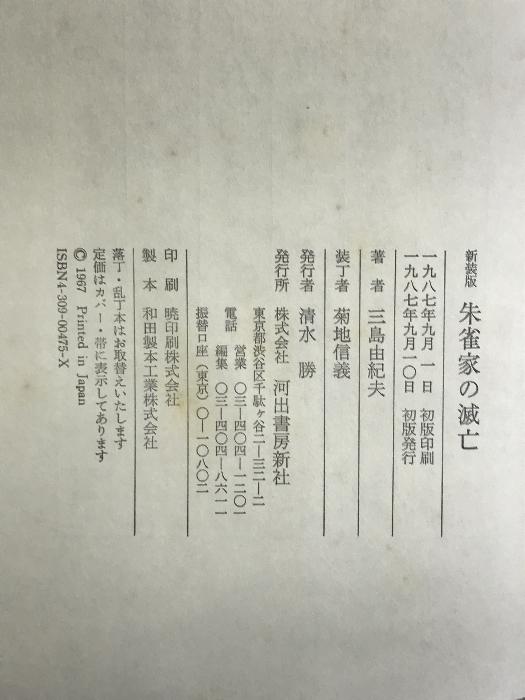 新装版 朱雀家の滅亡
一九八七年九月 一日 初版印刷
一九八七年九月一〇日 初版発行
著者 三島由紀夫
装丁者 菊地信義
発行者 清水 勝
発行所 株式会社 河出書房新社
東京都渋谷区千駄ヶ谷二―三二―二
電話 営業 〇三―四〇四―一二〇一
編集 〇三―四〇四―八六一一
振替口座(東京)〇―一〇八〇二
印刷 暁印刷株式会社
製本 和田製本工業株式会社
落丁・乱丁本はお取替えいたします
定価はカバー・帯に表示してあります
© 1967 Printed in Japan
ISBN4-309-00475-X